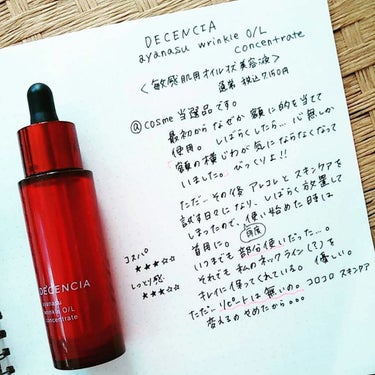 DECENCIA
ayanasu wrinkle O/L
concentrate
<敏感肌用オイル状美容液>
通常 税込7,150円
@cosme当選品です。
最初からなぜか額に的を当てて
使用。しばらくしたら…心無しか
額の横じわが気にならなくなって
いました。びっくり!!
ただ…その後アレコレとスキンケアを
試す日々になり、しばらく放置して
しまったので、使い始めた時は
首用に。
いつまでも部分使いだった…。
それでも私のネックライン(?)を
キレイに保ってくれている。優しい。
ただ…リピートは無いの。コロコロスキンケア
変えるのやめたから。。。
コスパ
★★★☆☆
しっとり感
★★★☆☆
DECENCIA
ayanasu
wrinkle O/L
concentrate